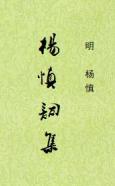 明 杨慎
楊慎詞集